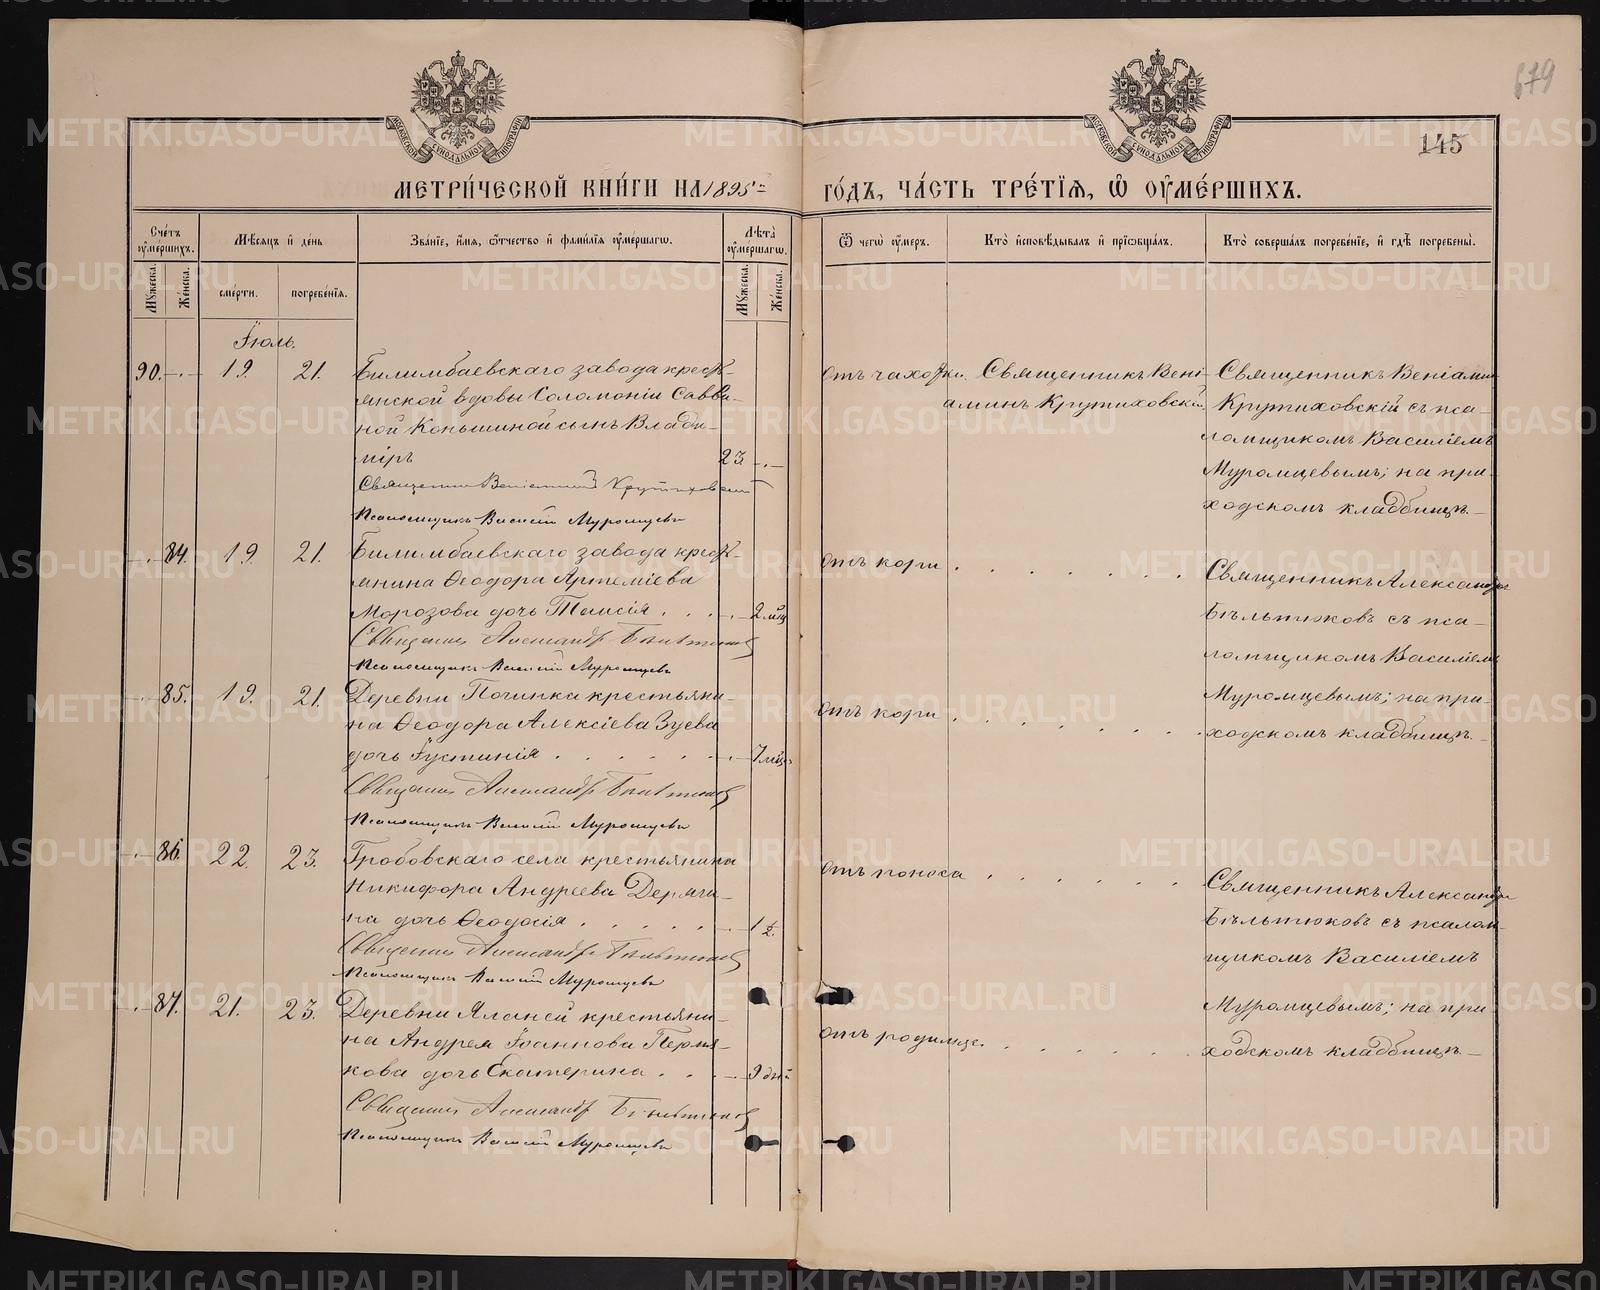 679
145
МОСКОВСКОЙ СУНОДАЛЬНОЙ ТИПОГРАФІИ
МОСКОВСКОЙ СУНОДАЛЬНОЙ ТИПОГРАФІИ
МЕТРИ́ЧЕСКОЙ КНИ́ГИ НА 1895 г. ГО́ДЪ, ЧА́СТЬ ТРЕ́ТІѦ, Ѡ҆ ОУ҆МЕ́РШИХЪ.
Сче́тъ оу҆ме́ршихъ.
Мꙋжеска.
Же́нска.
Мѣ́сяцъ и҆ де́нь
сме́рти.
погребе́нїѧ.
Зва́нїе, и҆́мѧ, ѻ҆́тчество и҆ фами́лїѧ оу҆ме́ршагѡ.
Лѣ́та оу҆ме́ршагѡ.
Мꙋжеска.
Же́нска.
Ѿ чегѡ̀ оу҆́меръ.
Кто̀ и҆сповѣ́дывалъ и҆ прїѡбща́лъ.
Кто̀ соверша́лъ погребе́нїе, и҆ гдѣ̀ погребены̀.
Іюль.
90. 19. 21. Билимбаевскаго завода кресть-
янской вдовы Соломоніи Савви-
ной Коньшиной сынъ Влади-
міръ 23
Священникъ Веніаминъ Крутиховскій
Псаломщикъ Василій Муромцевъ
отъ чахотки. Священникъ Вені-
аминъ Крутиховскій
Священникъ Веніамин
Крутиховскій съ пса-
ломщикомъ Василіемъ
Муромцевымъ; на при-
ходскомъ кладбищѣ.
84. 19. 21. Билимбаевскаго завода кресть-
янина Ѳеодора Артеміева
Морозова дочь Таисія . . . 2 мѣц
Священникъ Александръ Бѣльтюковъ
Псаломщикъ Василій Муромцевъ
отъ кори
Священникъ Александръ
Бѣльтюковъ съ пса-
ломщикомъ Василіемъ
Муромцевымъ; на при-
ходскомъ кладбищѣ.
85. 19. 21. Деревни Починка крестьяни-
на Ѳеодора Алексіева Зуева
дочь Іустинія . . . 7 мѣц.
Священникъ Александръ Бѣльтюковъ
Псаломщикъ Василій Муромцевъ
отъ кори
86. 22. 23. Гробовскаго села крестьянина
Никифора Андреева Деряги-
на дочь Ѳеодосія . . . 1 ½.
Священникъ Александръ Бѣльтюковъ
Псаломщикъ Василій Муромцевъ
отъ поноса
Священникъ Александръ
Бѣльтюковъ съ псалом-
щикомъ Василіемъ
Муромцевымъ; на при
ходскомъ кладбищѣ.
87. 21. 23. Деревни Яланей крестьяни-
на Андрея Іоаннова Пермя-
кова дочь Екатерина . . 9 дней
Священникъ Александръ Бѣльтюковъ
Псаломщикъ Василій Муромцевъ
отъ родимца.
METRIKI.GASO-URAL.RU